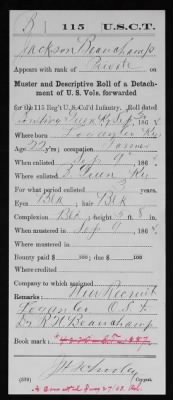 B | 115 | U.S.C.T.
Jackson Beauchamp
Appears with rank of Private on
Muster and Descriptive Roll of a Detach-
ment of U. S. Vols. forwarded
for the 115 Reg't U.S. Col'd Infantry. Roll dated
186
Where born Logan Co Ky
Age 22 y'rs; occupation Farmer
When enlisted Sep 9, 186
Where enlisted Ky
For what period enlisted 3 years.
Eyes Blk; hair Blk
Complexion Blk; height 5 ft. 8 in.
When mustered in Sep 9, 186
Where mustered in
Bounty paid $ 100; due $ 100
Where credited
Company to which assigned
Remarks: New Recruit
Logan Co
R H Beauchamp
Book mark:
(339) Copyist.